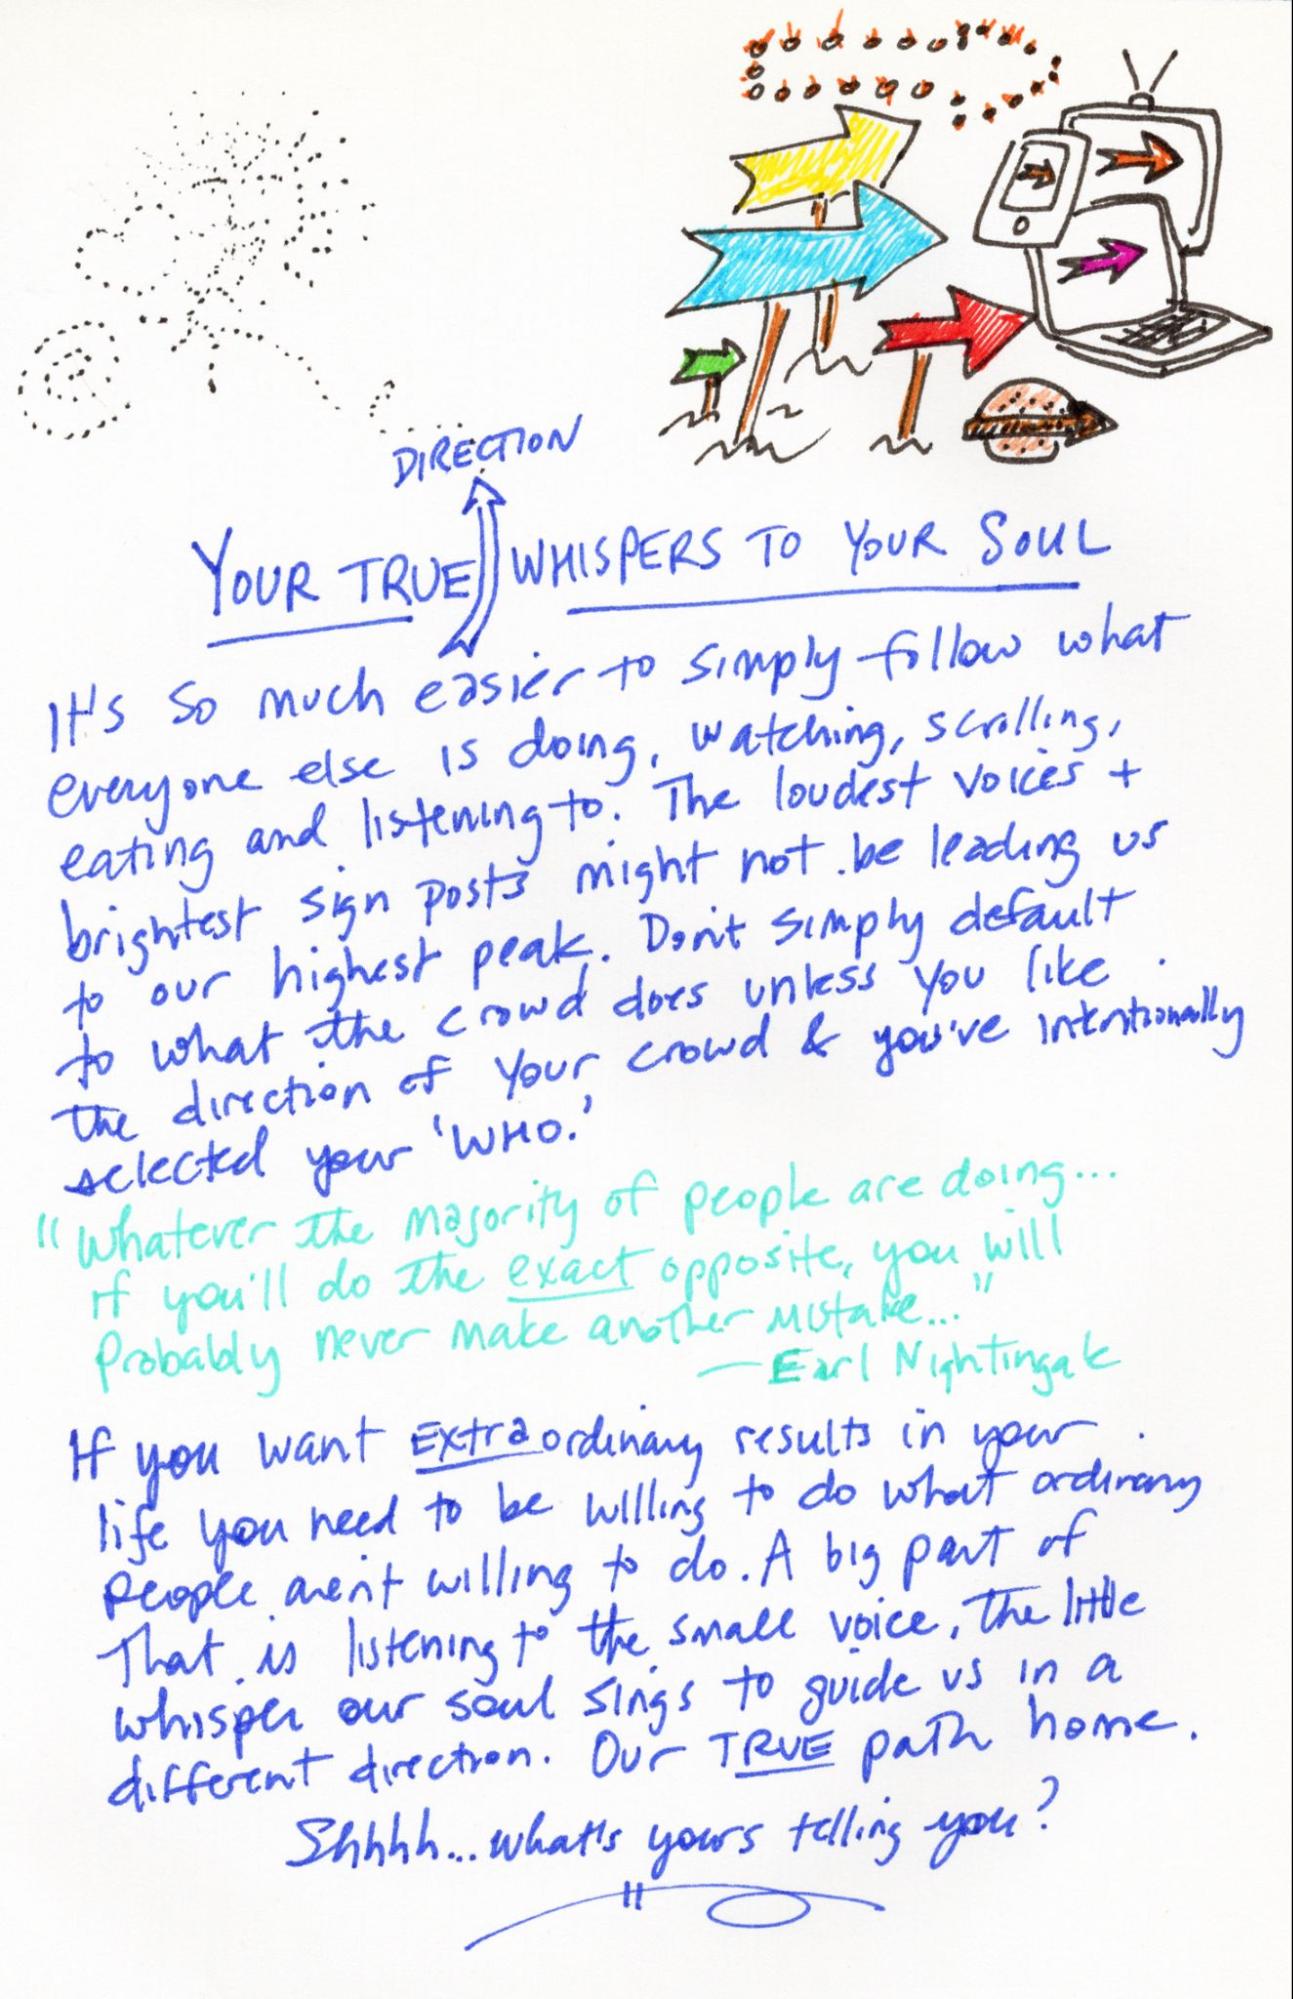 DIRECTION
YOUR TRUE WHISPERS TO YOUR SOUL
It's so much easier to simply follow what
everyone else is doing, watching, scrolling,
eating and listening to. The loudest voices +
brightest sign posts might not be leading us
to our highest peak. Don't simply default
to what the crowd does unless you like
the direction of your crowd & you've intentionally
selected your 'WHO.'
"Whatever the majority of people are doing...
if you'll do the exact opposite, you will
probably never make another mistake..."
— Earl Nightingale
If you want EXTRAordinary results in your
life you need to be willing to do what ordinary
people aren't willing to do. A big part of
that is listening to the small voice, the little
whisper our soul sings to guide us in a
different direction. Our TRUE path home.
Shhhh...what's yours telling you?